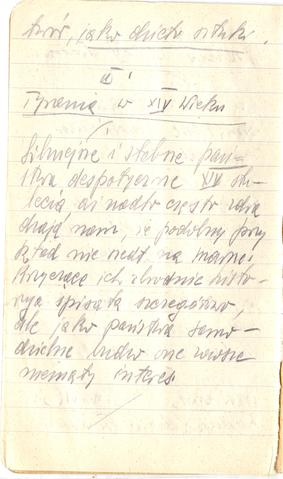 twór, jako dzieło sztuki.
II
Tyrania w XIV wieku
Silniejsze i słabsze pań-
stwa despotyczne XIV stu-
lecia, aż nadto często zdra
dzają nam, że podobny przy
kład nie szedł na marne.
Krzyczące ich zbrodnie histo-
rya spisała szczegółowo,
ale jako państwa samo-
dzielne budzą one zawsze
niemały interes.